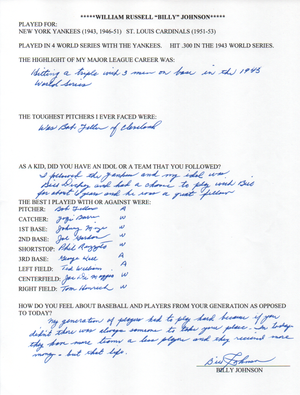 *****WILLIAM RUSSELL "BILLY" JOHNSON*****
PLAYED FOR:
NEW YORK YANKEES (1943, 1946-51) ST. LOUIS CARDINALS (1951-53)
PLAYED IN 4 WORLD SERIES WITH THE YANKEES. HIT .300 IN THE 1943 WORLD SERIES.
THE HIGHLIGHT OF MY MAJOR LEAGUE CAREER WAS:
Hitting a triple with 3 men on base in the 1943
World Series
THE TOUGHEST PITCHERS I EVER FACED WERE:
Was Bob Feller of Cleveland
AS A KID, DID YOU HAVE AN IDOL OR A TEAM THAT YOU FOLLOWED?
I followed the Yankees and my idol was
Bill Dickey and had a chance to play with Bill
for about 6 years and he was a great fellow
THE BEST I PLAYED WITH OR AGAINST WERE:
PITCHER: Bob Feller A
CATCHER: Yogi Berra W
1ST BASE: Johnny Mize W
2ND BASE: Joe Gordon W
SHORTSTOP: Phil Rizzuto W
3RD BASE: George Kell A
LEFT FIELD: Ted Williams A
CENTERFIELD: Joe Di Maggio W
RIGHT FIELD: Tom Henrich W
HOW DO YOU FEEL ABOUT BASEBALL AND PLAYERS FROM YOUR GENERATION AS OPPOSED
TO TODAY?
My generation of players had to play hard because if you
didn't there was always someone to take your place. In today
they have more teams & less players and they receive more
money - but that life.
Billy Johnson
BILLY JOHNSON